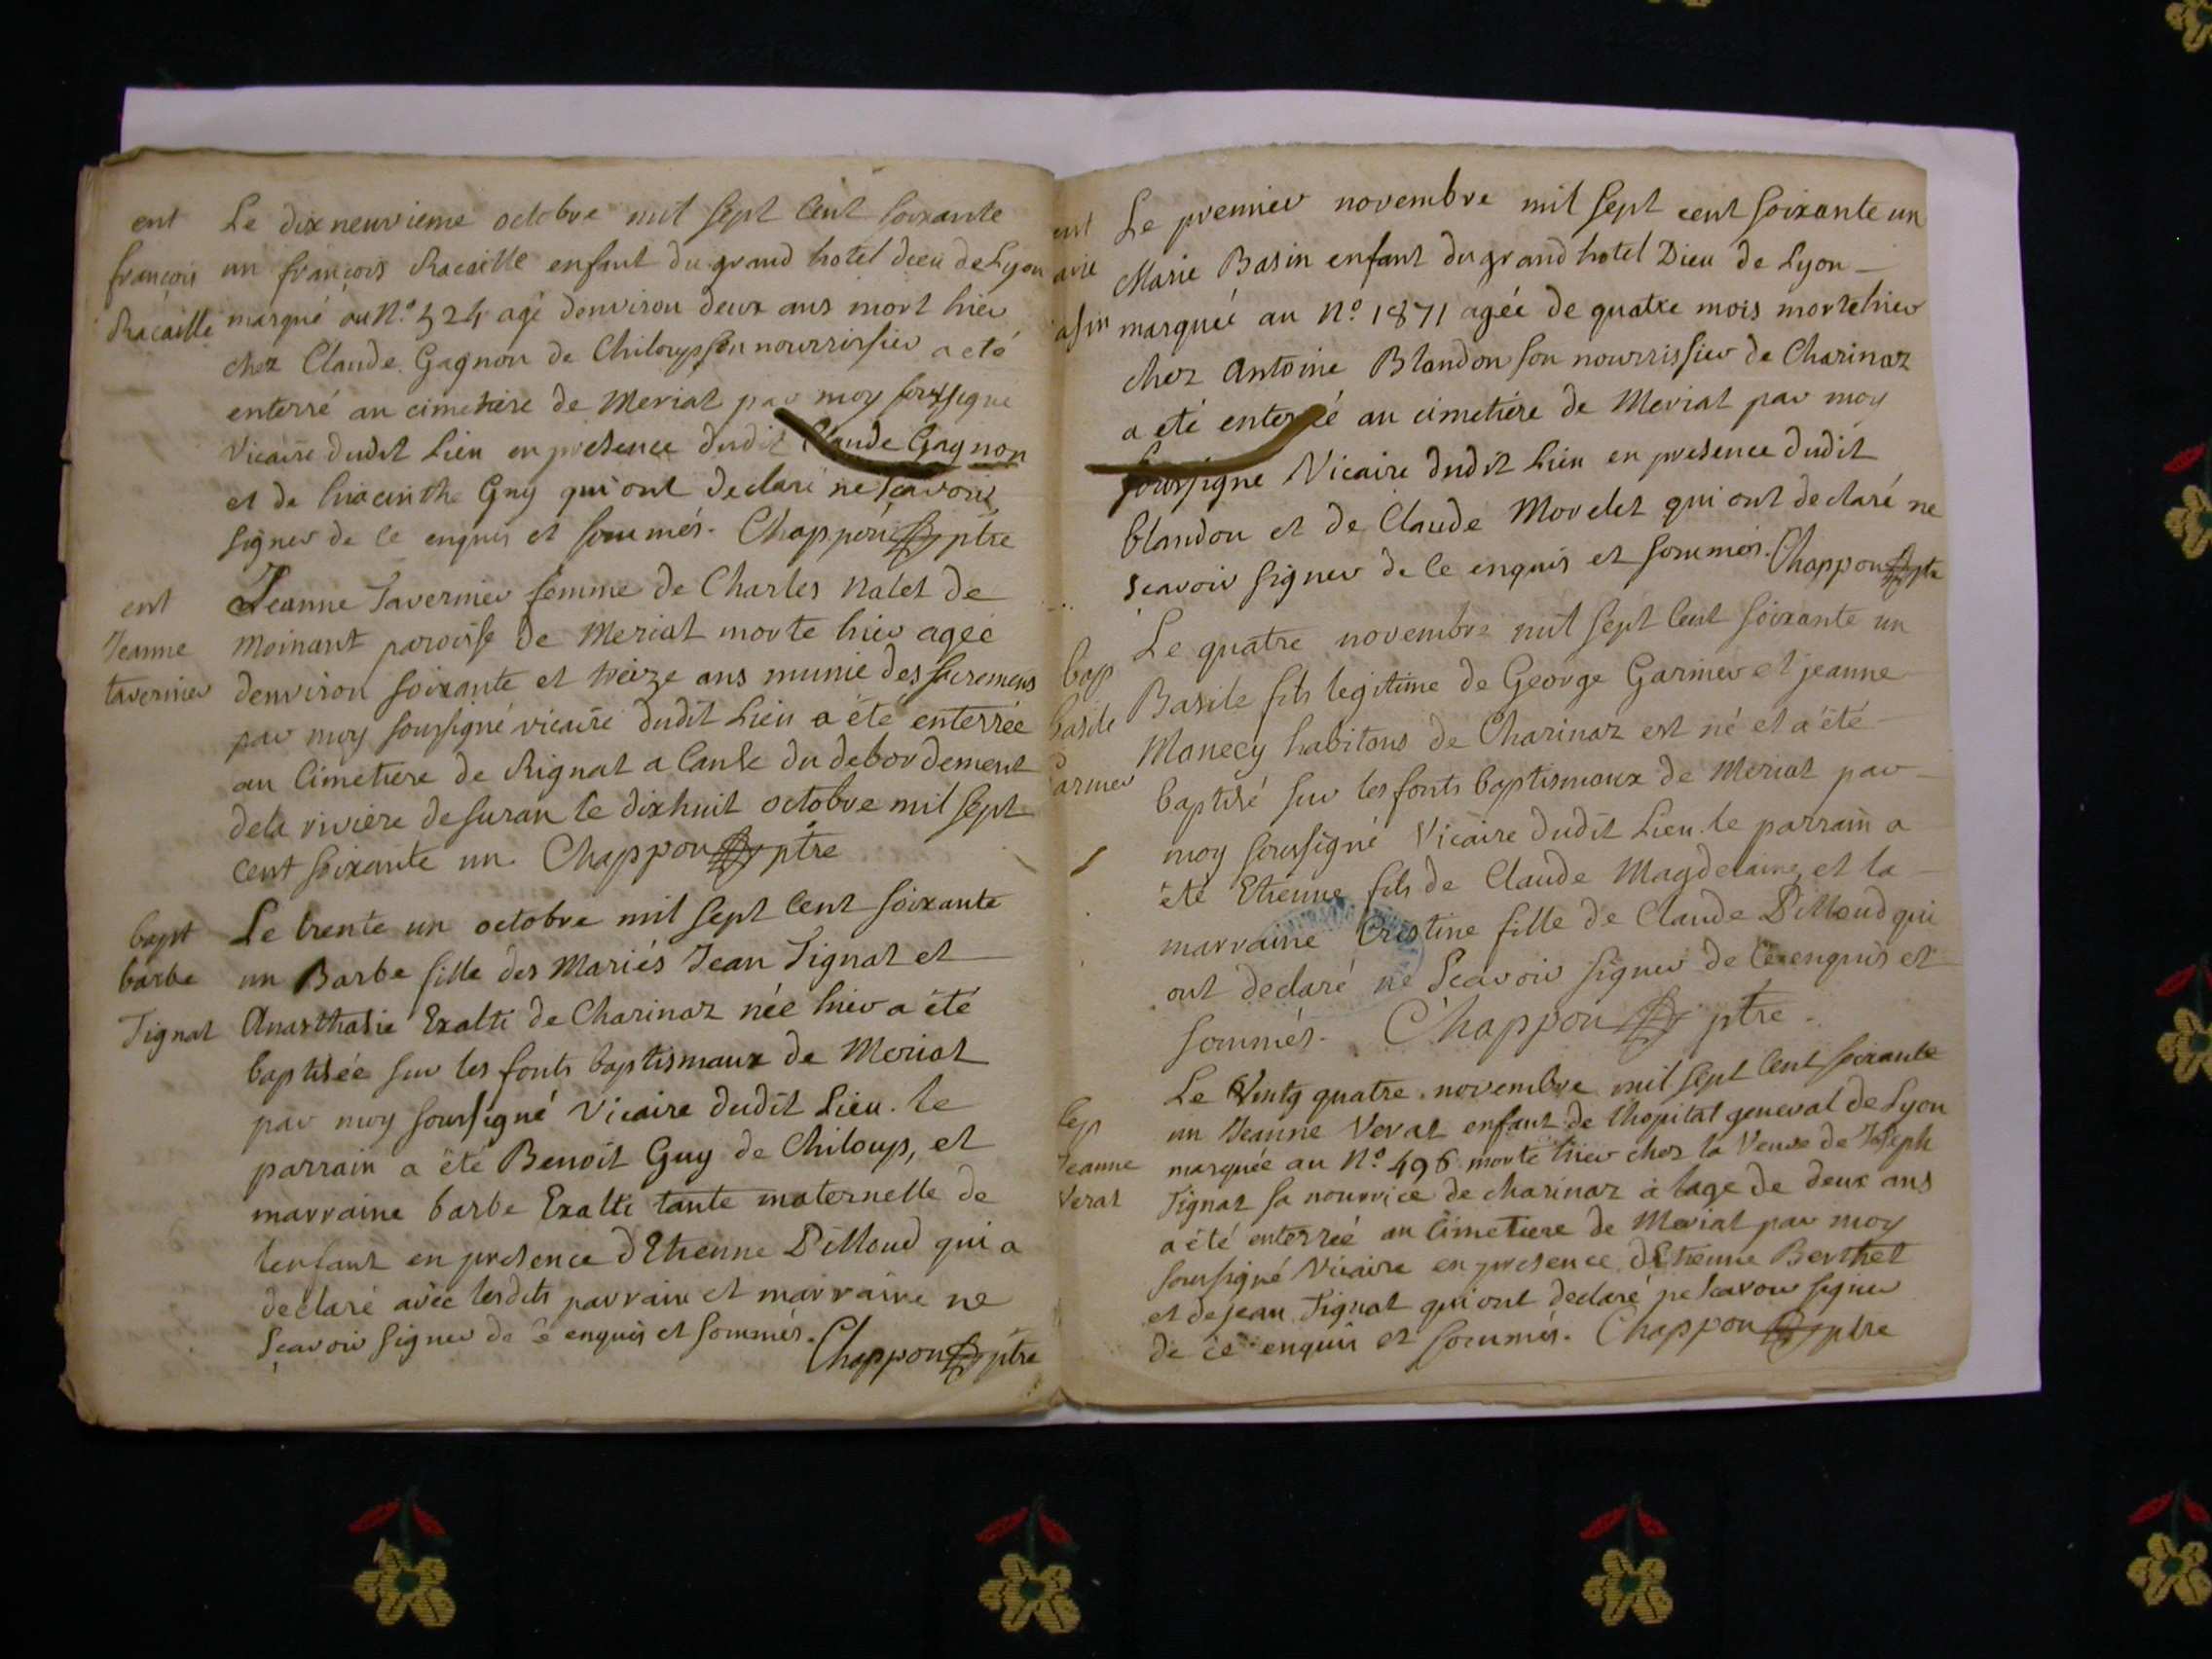 ent
françois
Racaille
Le dix neuvieme octobre mil sept Cent soixante
un françois Racaille enfant du grand hotel dieu de Lyon
marqué au N.o 524 agé denviron deux ans mort hier
chez Claude Gagnon de Chiloup son nourrissier a eté
enterré au cimetiere de Meriat par moy soussigné
Vicaire dudit Lieu en presence dudit Claude Gagnon
et de hiacinthe Guy qui ont declaré ne scavoir
signer de ce enquis et sommés. Chappon ptre
ent
Jeanne
tavernier
Jeanne Tavernier femme de Charles Nalet de
Moinant paroisse de Meriat morte hier agée
denviron soixante et treize ans munie des sacremens
par moy soussigné vicaire dudit Lieu a été enterrée
au Cimetiere de Rignat a Cause du debordement
dela riviere de suran le dixhuit octobre mil sept
cent soixante un. Chappon ptre
bapt
barbe
Tignat
Le trente un octobre mil sept Cent soixante
un Barbe fille des Mariés Jean Tignat et
Anasthasie Exalti de Charinaz née hier a été
baptisée sur les fonts baptismaux de Meriat
par moy soussigné Vicaire dudit Lieu. le
parrain a été Benoit Guy de Chiloup, et
marraine barbe Exalti tante maternelle de
lenfant en presence dEtienne Pilloud qui a
declaré avec lesdits parrain et marraine ne
sçavoir signer de ce enquis et sommés.
Chappon ptre
ent
arie
asin
Le premier novembre mil sept cent soixante un
Marie Basin enfant du grand hotel Dieu de Lyon
marquée au N.o 1871 agée de quatre mois morte hier
chez Antoine Blandon son nourrissier de Charinaz
a eté enterré au cimetiére de Meriat par moy
soussigné Vicaire dudit Lieu en presence dudit
blandon et de Claude Morelet qui ont declaré ne
scavoir signer de ce enquis et sommés. Chappon ptre
bap
basile
armer
Le quatre novembre mil sept Cent soixante un
Basile fils legitime de George Garnier et jeanne
Monecy habitans de Charinaz est né et a été
baptisé sur les fonts baptismaux de Meriat par
moy soussigné Vicaire dudit Lieu. le parrain a
été Etienne fils de Claude Magdelaine, et la
marraine Cristine fille de Claude Pilloud qui
ont declaré ne Scavoir signer de Ce enquis et
sommés. Chappon ptre.
Jeanne
Verat
Le Vintg quatre novembre mil sept Cent soixante
un Jeanne Verat enfant de lhopital general de Lyon
marquée au N.o 496 morte hier chez la Veuve de Joseph
Tignat sa nourrice de charinaz a lage de deux ans
a été enterrée au Cimetiere de Meriat par moy
soussigné Vicaire en presence dEtienne Berthet
et de jean Tignat qui ont declaré ne scavoir signer
de ce enquis et sommés. Chappon ptre